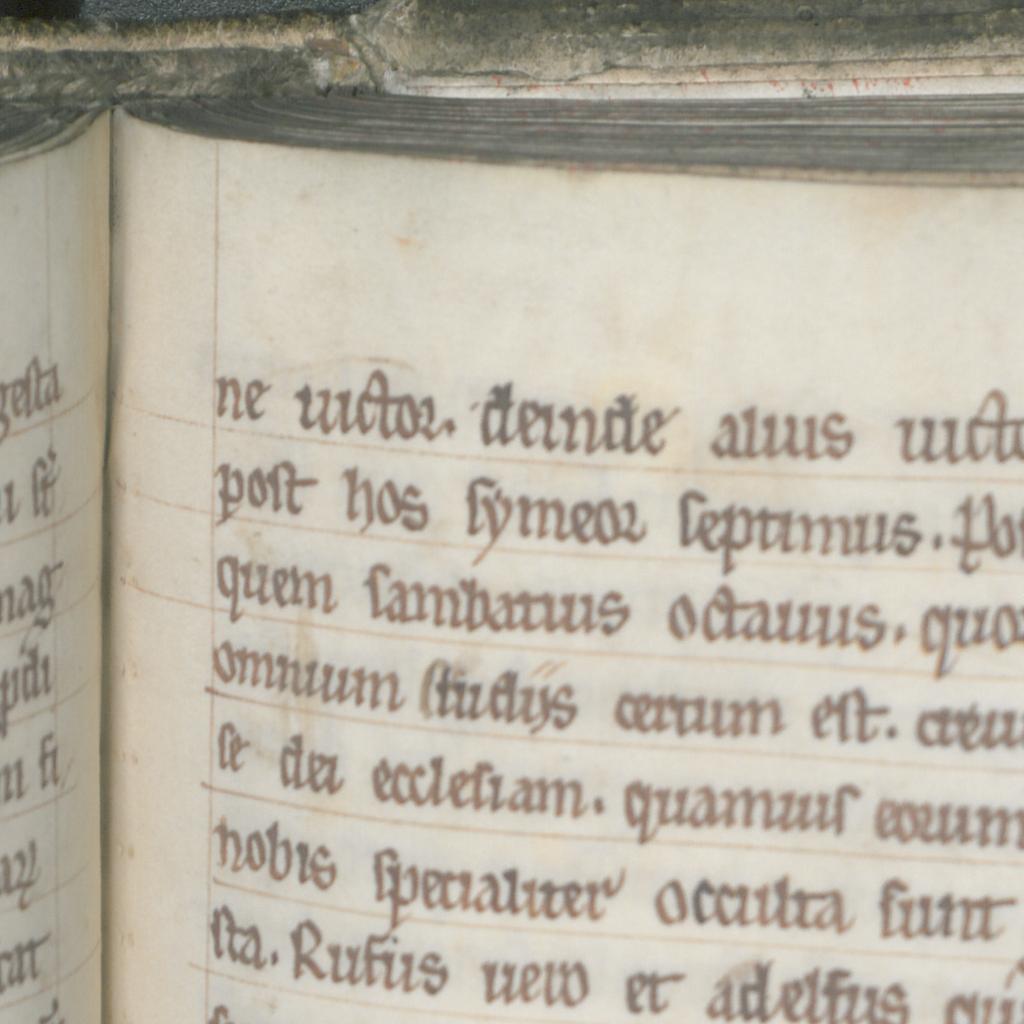 gesta
mag
pidi
ne uictor. deinde alius uicto
post hos symeor septimus. Pos
quem sambatius octauus. quor
omnium studijs certum est. creui
se dei ecclesiam. quamuis eorum
nobis specialiter occulta sunt
sta. Rufus uero et adelfus qui